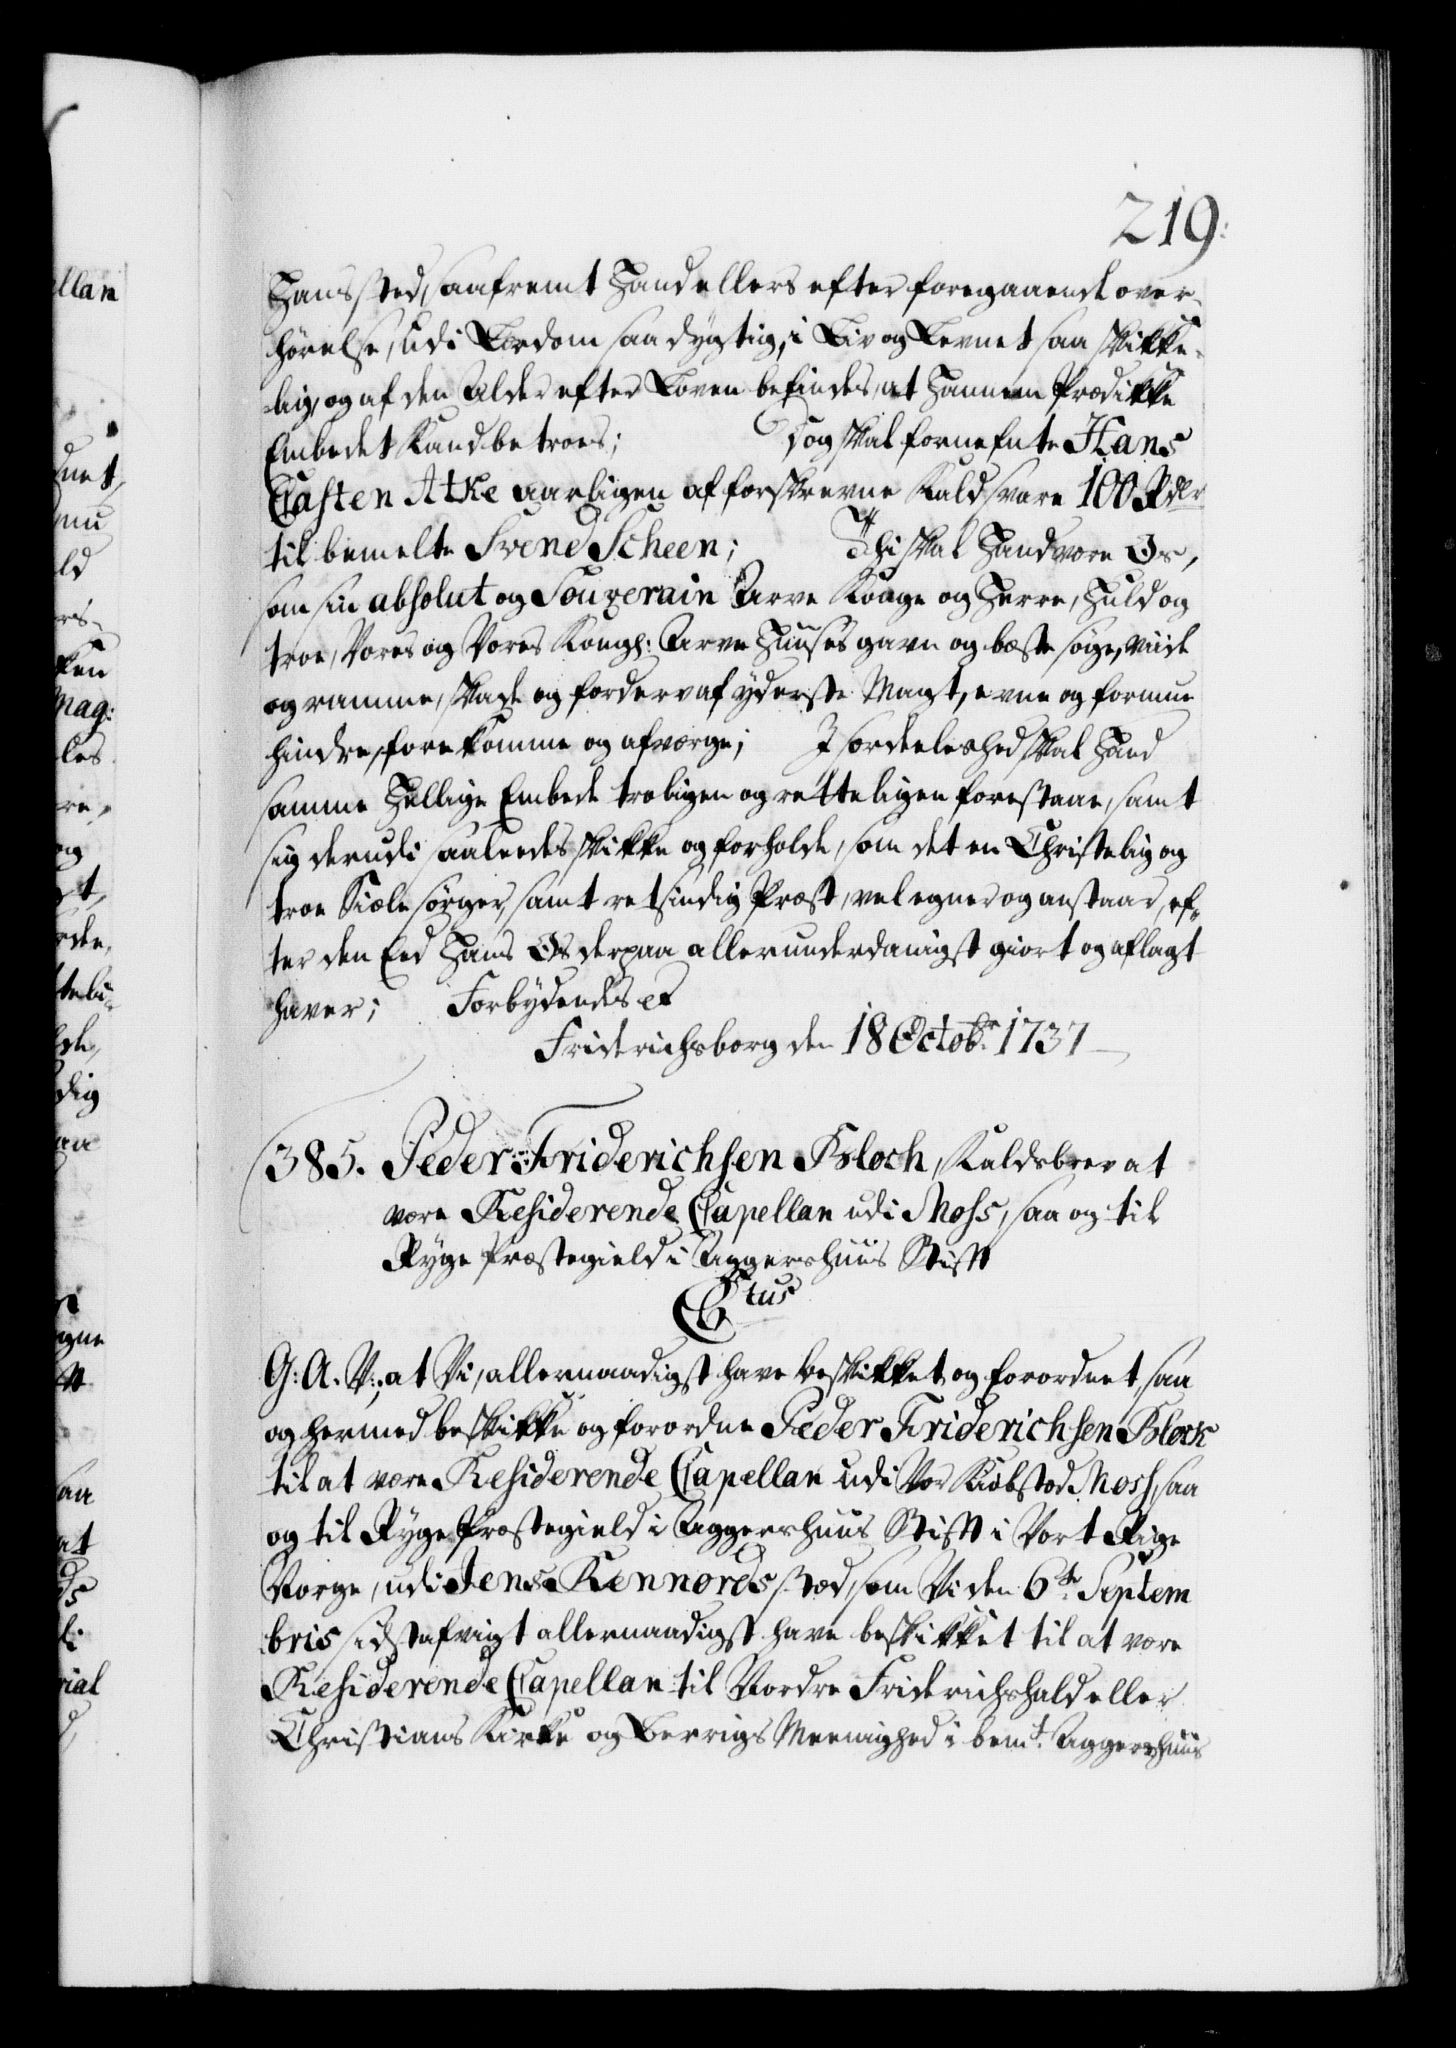 219.
Hans sted, saafremt Hand ellers efter foregaaende over-
hørelse, udi Lærdom saa dygtig, i Liv og Levnet saa skikke-
lig, og af den Alder efter Loven befindes, at Hannem Prædikke
Embedet Kand betroes; Dog skal fornefnte Hans
Casten Atke aarligen af forskrevne Kald svare 100 Rdlr
til bemelte Svend Scheen; Thi skal Hand være Os,
som sin absolut og Souverain Arve Konge og Herre, Huld og
troe, Vores og Vores Kongl: Arve Huuses gavn og bæste søge, viide
og ramme, skade og forderv af yderste Magt, evne og formue
hindre, forekomme og afværge; I særdeleshed skal Hand
samme Hellige Embede troligen og retteligen forestaae, samt
sig derudi saaledes skikke og forholde, som det en Christelig og
troe Siæle sørger, samt retsindig Præst, vel egner og anstaar, ef-
ter den Eed Hans Os derpaa allerunderdanigst giort og aflagt
haver; Forbydendes etc
Friderichsborg den 18 Octobr. 1737
385. Peder Friderichsen Bloch, Kaldsbrev at
være Residerende Capellan udi Moss, saa og til
Ryge Præstegield i Aggershuus Stift
Ctus
G: A. V:, at Vi, allernaadigst have beskikket og forordnet, saa
og hermed beskikke og forordne Peder Friderichsen Block
til at være Residerende Capellan udi Vor Kiøbstæd Moss, saa
og til Ryge Præstegield i Aggershuus Stift i Vort Rige
Norge, udi Jens Kennords stæd, som Vi den 6te Septem
bris sidstafvigt allernaadigst have beskikket til at være
Residerende Capellan til Nordre Friderichshald eller
Christians Kirke og Berrigs Meenighed i bemt. Aggershuus